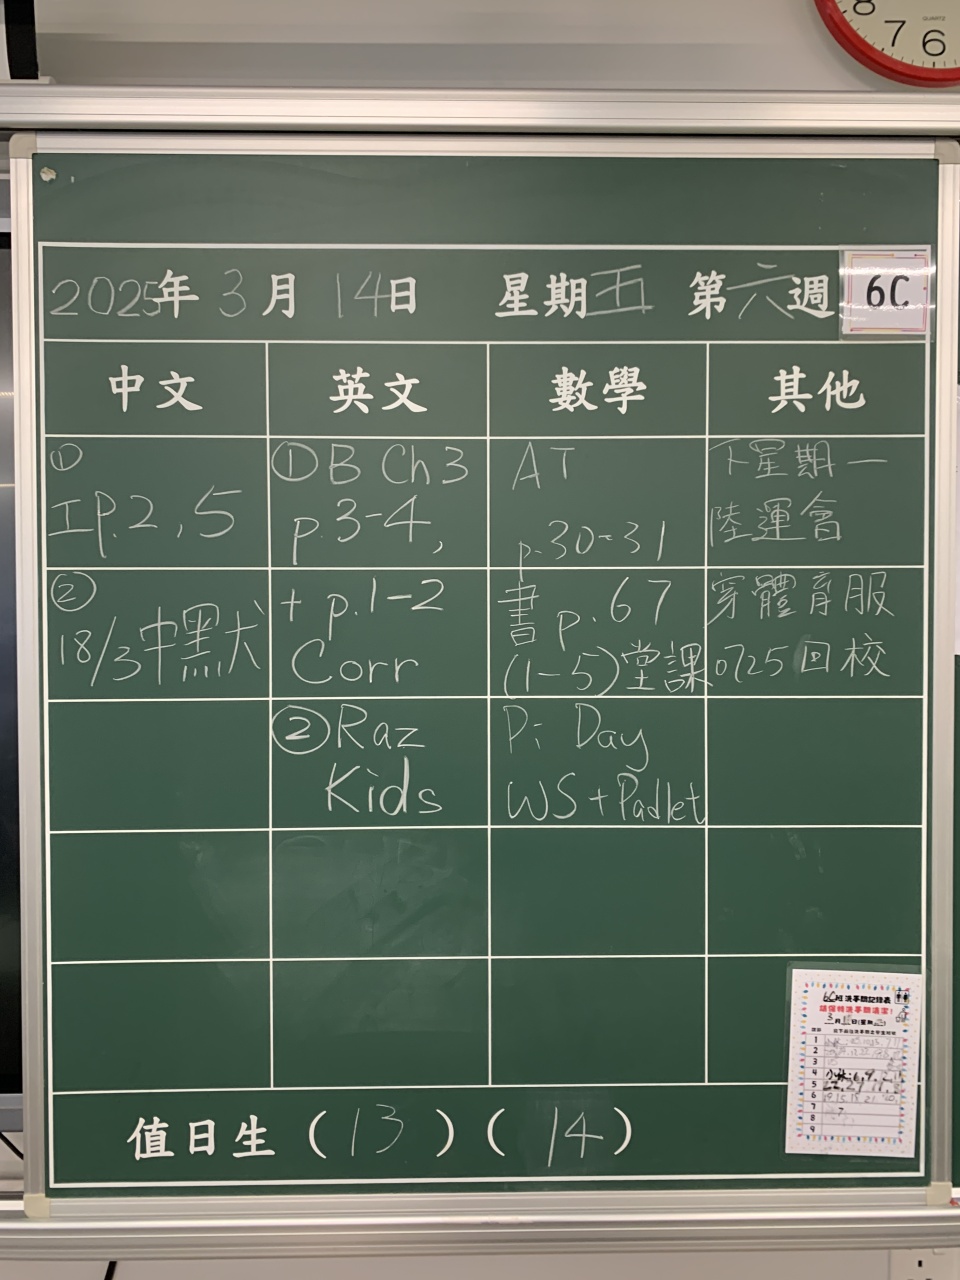 8
7 6
QUARTZ
2025年 3月 14日 星期五 第六週
6C
中文 英文 數學 其他
①
工P.2,5
① B Ch 3
p.3-4,
AT
p.30-31
下星期一
陸運會
②
18/3中默犬
+ p.1-2
Corr
書p.67
(1-5)堂課
穿體育服
0725回校
② Raz
Kids
Pi Day
WS+Padlet
值日生(13)(14)
6C班洗手間記錄表
請保持洗手間清潔!
1
2
3
4
5
6
7
8
9